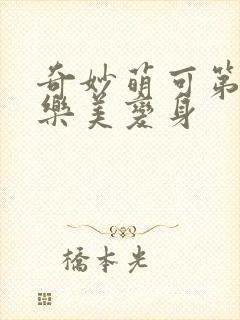 奇妙萌可第
樂美變身
橋本光